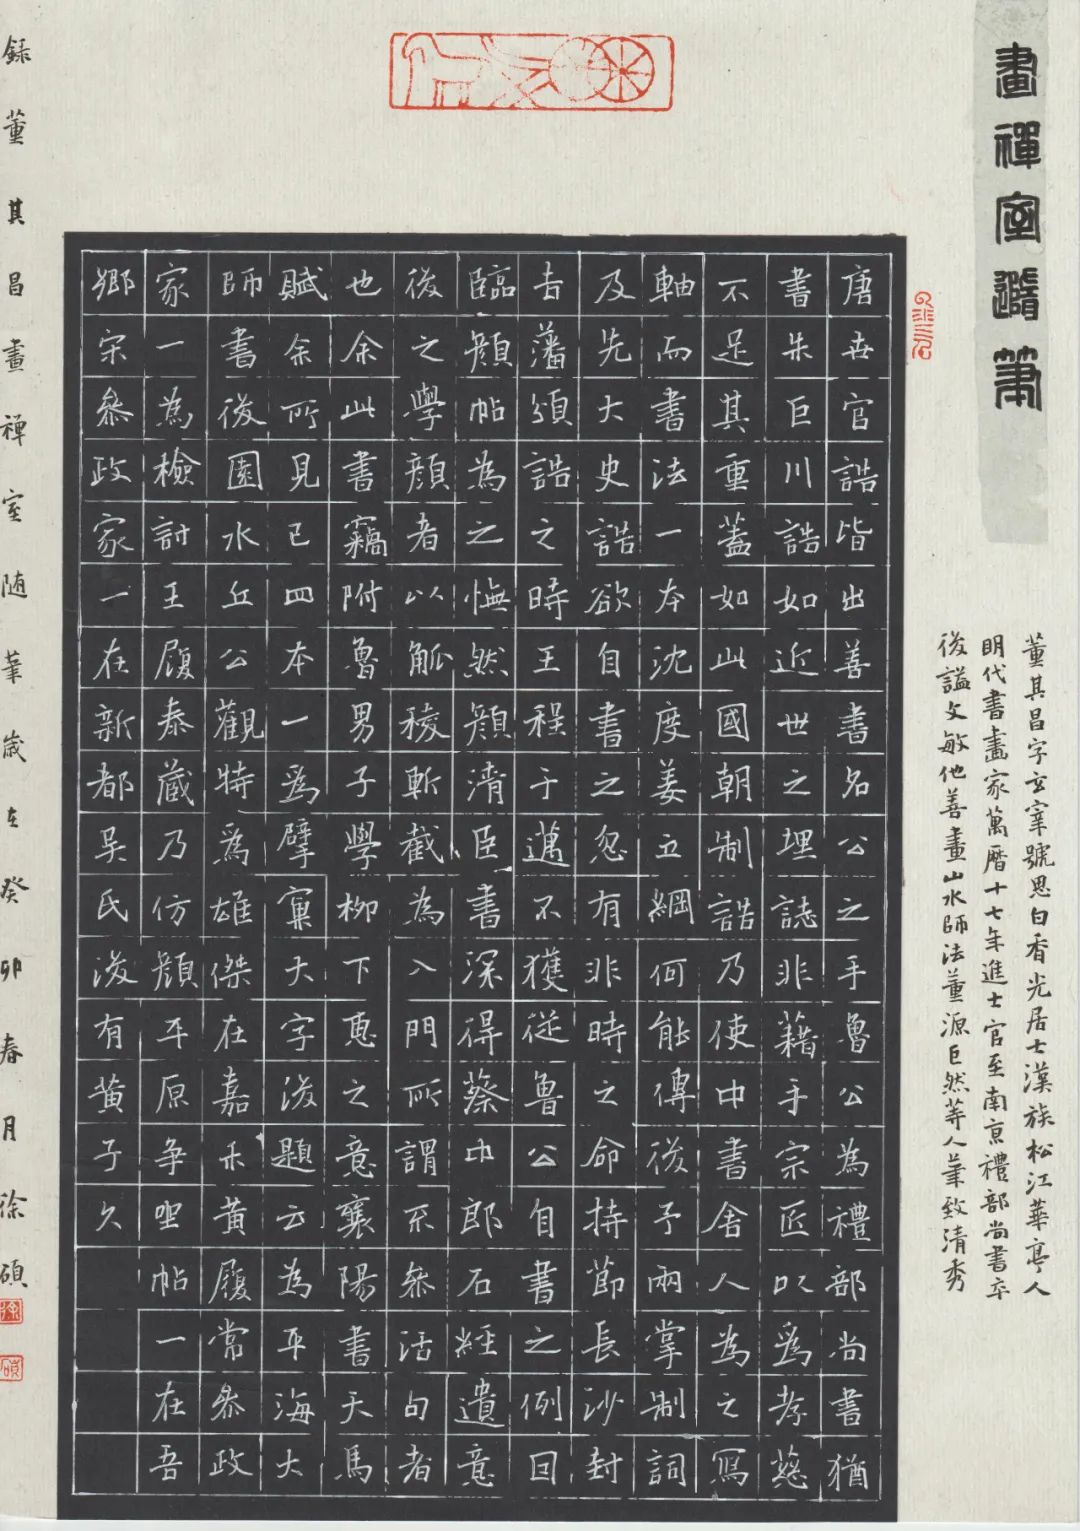 畫禪室隨筆
董其昌字玄宰號思白香光居士漢族松江華亭人
明代書畫家萬曆十七年進士官至南京禮部尚書卒
後謚文敏他善畫山水師法董源巨然等人筆致清秀
唐世官誥皆出善書名公之手魯公為禮部尚書猶
書朱巨川誥如近世之埋誌非藉手宗匠以為孝慈
不足其重蓋如此國朝制誥乃使中書舍人為之寫
軸而書法一本沈度姜立綱何能傳後予兩掌制詞
及先大史誥欲自書之忽有非時之命持節長沙封
吉藩頒誥之時王程于邁不獲從魯公自書之例因
臨顏帖為之憮然顏清臣書深得蔡中郎石經遺意
後之學顏者以觚稜斬截為入門所謂不參活句者
也余此書竊附魯男子學柳下惠之意襄陽書天馬
賦余所見已四本一為擘窠大字後題云為平海大
師書後園水丘公觀特為雄傑在嘉禾黃履常參政
家一為檢討王履泰藏乃仿顏平原爭坐帖一在吾
鄉宋參政家一在新都吳氏後有黃子久
錄董其昌畫禪室随筆歲在癸卯春月徐碩
徐
碩